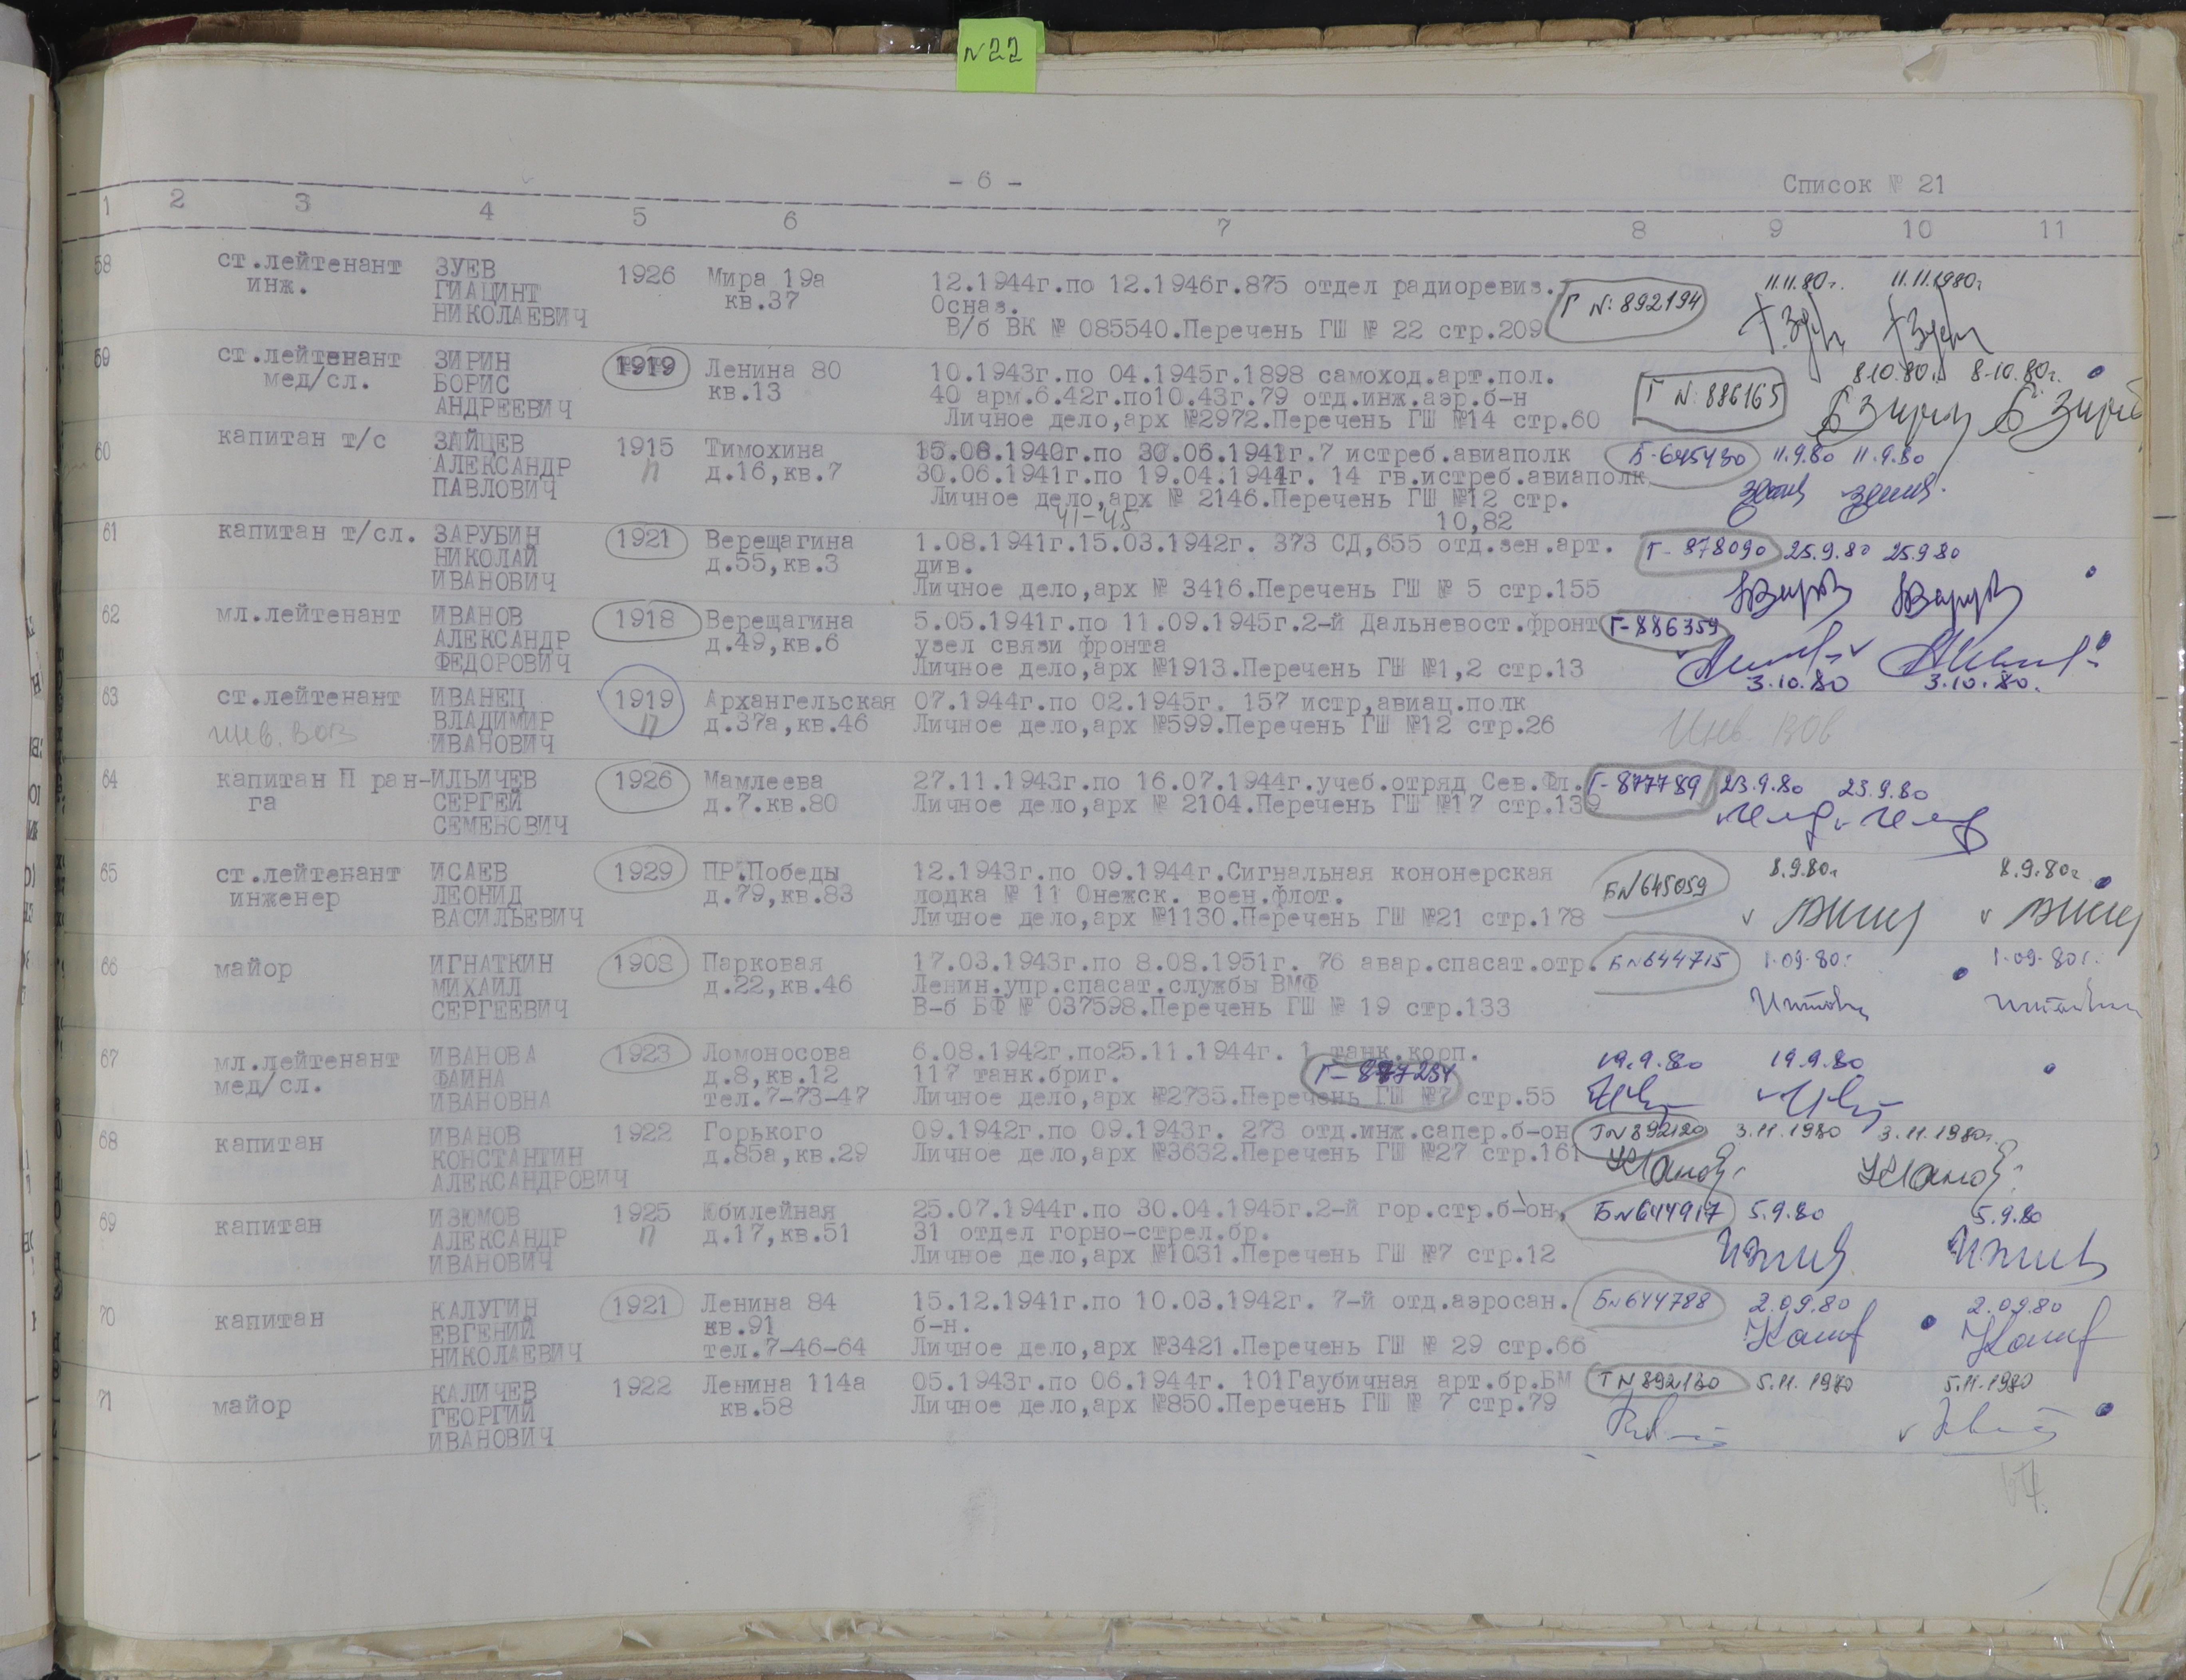 N22
- 6 -
Список № 21
1 2 3 4 5 6 7 8 9 10 11
58 ст.лейтенант ЗУЕВ 1926 Мира 19а 12.1944г.по 12.1946г.875 отдел радиоревиз. Г N: 892194 11.11.80г. 11.11.1980г.
инж. ГИАЦИНТ кв.37 Осназ.
НИКОЛАЕВИЧ В/б ВК № 085540.Перечень ГШ № 22 стр.209
59 ст.лейтенант ЗИРИН 1919 Ленина 80 10.1943г.по 04.1945г.1898 самоход.арт.пол. Г N: 886165 8.10.80г. 8.10.80г.
мед/сл. БОРИС кв.13 40 арм.6.42г.по10.43г.79 отд.инж.аэр.б-н
АНДРЕЕВИЧ Личное дело,арх №2972.Перечень ГШ №14 стр.60
60 капитан т/с ЗАЙЦЕВ 1915 Тимохина 15.08.1940г.по 30.06.1941г.7 истреб.авиаполк Б-645480 11.9.80 11.9.80
АЛЕКСАНДР п д.16,кв.7 30.06.1941г.по 19.04.1944г. 14 гв.истреб.авиаполк
ПАВЛОВИЧ Личное дело,арх № 2146.Перечень ГШ №12 стр.
41-45 10,82
61 капитан т/сл. ЗАРУБИН 1921 Верещагина 1.08.1941г.15.03.1942г. 373 СД,655 отд.зен.арт. Г- 878090 25.9.80 25.9.80
НИКОЛАЙ д.55,кв.3 див.
ИВАНОВИЧ Личное дело,арх № 3416.Перечень ГШ № 5 стр.155
62 мл.лейтенант ИВАНОВ 1918 Верещагина 5.05.1941г.по 11.09.1945г.2-й Дальневост.фронт Г-886359
АЛЕКСАНДР д.49,кв.6 узел связи фронта
ФЕДОРОВИЧ Личное дело,арх №1913.Перечень ГШ №1,2 стр.13 3.10.80 3.10.80.
63 ст.лейтенант ИВАНЕЦ 1919 Архангельская 07.1944г.по 02.1945г. 157 истр,авиац.полк
инв. ВОВ ВЛАДИМИР п д.37а,кв.46 Личное дело,арх №599.Перечень ГШ №12 стр.26 Инв. ВОВ
ИВАНОВИЧ
64 капитан П ран- ИЛЬИЧЕВ 1926 Мамлеева 27.11.1943г.по 16.07.1944г.учеб.отряд Сев.Фл. Г-877789 23.9.80 23.9.80
га СЕРГЕЙ д.7.кв.80 Личное дело,арх № 2104.Перечень ГШ №17 стр.139
СЕМЕНОВИЧ
65 ст.лейтенант ИСАЕВ 1929 ПР.Победы 12.1943г.по 09.1944г.Сигнальная кононерская БN645059 8.9.80г 8.9.80г
инженер ЛЕОНИД д.79,кв.83 лодка № 11 Онежск. воен.флот.
ВАСИЛЬЕВИЧ Личное дело,арх №1130.Перечень ГШ №21 стр.178
66 майор ИГНАТКИН 1908 Парковая 17.03.1943г.по 8.08.1951г. 76 авар.спасат.отр. БN644715 1.09.80г. 1.09.80г.
МИХАИЛ д.22,кв.46 Ленин.упр.спасат.службы ВМФ
СЕРГЕЕВИЧ В-б БФ № 037598.Перечень ГШ № 19 стр.133
67 мл.лейтенант ИВАНОВА 1923 Ломоносова 6.08.1942г.по25.11.1944г. 1 танк.корп. 19.9.80 19.9.80
мед/сл. ФАИНА д.8,кв.12 117 танк.бриг. Г-877234
ИВАНОВНА тел.7-73-47 Личное дело,арх №2735.Перечень ГШ №7 стр.55
68 капитан ИВАНОВ 1922 Горького 09.1942г.по 09.1943г. 273 отд.инж.сапер.б-он ГN892120 3.11.1980 3.11.1980г.
КОНСТАНТИН д.85а,кв.29 Личное дело,арх №3632.Перечень ГШ №27 стр.161
АЛЕКСАНДРОВИЧ
69 капитан ИЗЮМОВ 1925 Юбилейная 25.07.1944г.по 30.04.1945г.2-й гор.стр.б-он, БN644917 5.9.80 5.9.80
АЛЕКСАНДР п д.17,кв.51 31 отдел горно-стрел.бр.
ИВАНОВИЧ Личное дело,арх №1031.Перечень ГШ №7 стр.12
70 капитан КАЛУГИН 1921 Ленина 84 15.12.1941г.по 10.03.1942г. 7-й отд.аэросан. БN644788 2.09.80 2.09.80
ЕВГЕНИЙ кв.91 б-н.
НИКОЛАЕВИЧ тел.7-46-64 Личное дело,арх №3421.Перечень ГШ № 29 стр.66
71 майор КАЛИЧЕВ 1922 Ленина 114а 05.1943г.по 06.1944г. 101Гаубичная арт.бр.БМ ГN892130 5.11.1980 5.11.1980
ГЕОРГИЙ кв.58 Личное дело,арх №850.Перечень ГШ № 7 стр.79
ИВАНОВИЧ